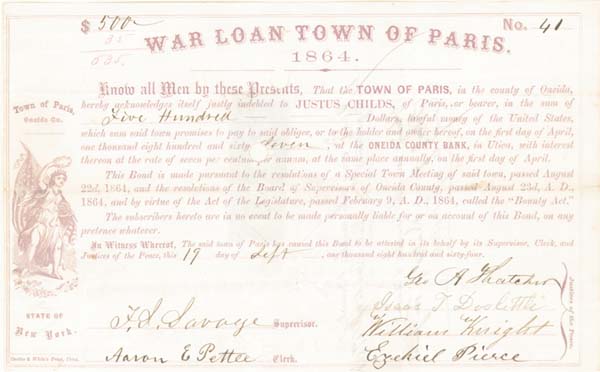 $ 500
No. 41
35
535.
WAR LOAN TOWN OF PARIS.
1864.
Know all Men by these Presents, That the TOWN OF PARIS, in the county of Oneida,
hereby acknowledges itself justly indebted to JUSTUS CHILDS, of Paris, or bearer, in the sum of
Five Hundred Dollars, lawful money of the United States,
which sum said town promises to pay to said obligee, or to the holder and owner hereof, on the first day of April,
one thousand eight hundred and sixty seven, at the ONEIDA COUNTY BANK, in Utica, with interest
thereon at the rate of seven per centum per annum, at the same place annually, on the first day of April.
This Bond is made pursuant to the resolutions of a Special Town Meeting of said town, passed August
22d, 1864, and the resolutions of the Board of Supervisors of Oneida County, passed August 23d, A. D.,
1864, and by virtue of the Act of the Legislature, passed February 9, A. D., 1864, called the "Bounty Act."
The subscribers hereto are in no event to be made personally liable for or on account of this Bond, on any
pretence whatever.
In Witness Whereof, The said town of Paris has caused this Bond to be attested in its behalf by its Supervisor, Clerk, and
Justices of the Peace, this 19 day of Sept, one thousand eight hundred and sixty-four.
Town of Paris,
Oneida Co.
STATE OF
New York.
Geo A Thatcher
Isaac T. Doolittle
William Knight
Ezekiel Pierce
Justices of the Peace.
F. S. Savage Supervisor.
Aaron E Pettee Clerk.